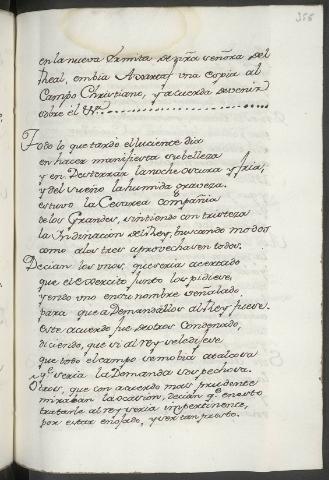 356
en la nueva Ermita de nra señora del
Real, embia Audarra, una copia al
Campo Christiano, y acuerda de venir
sobre el
Todo lo que tardó el luciente dia
en hacer manifiesta su belleza
y en Desterrar la noche oscura y fria,
y del sueño la humida graveza.
estuvo la Cesarea compañia
de los Grandes, sintiendo con tristeza
la Indinacion del Rey, buscando modos
como a los tres aprovechasen todos.
Decian los unos, que seria acertado
que el exercito junto los pidiese,
yendo uno en su nombre señalado
para que a Demandallos al Rey fuese.
este acuerdo fue de otros Condenado,
diciendo, que si al rey se le dijese
que todo el campo
q.e seria la Demanda sospechosa.
Otros, que con acuerdo mas prudente
miraban la ocasion, decian q.e en esto
tratarle al rey seria impertinente,
por estar enojado, y ser tan presto.